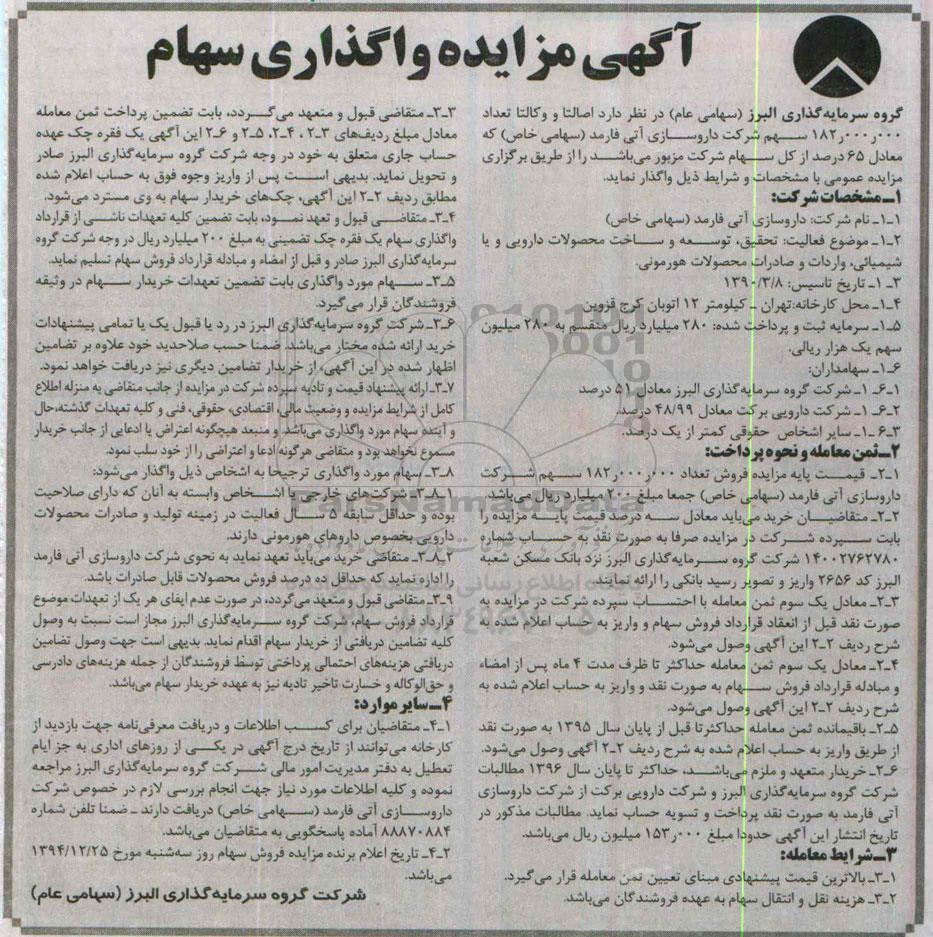 آگهی مزایده واگذاری سهام
گروه سرمایه‌گذاری البرز (سهامی عام) در نظر دارد اصالتا و وکالتا تعداد
۱۸۲٫۰۰۰٫۰۰۰ سهم شرکت داروسازی آتی فارمد (سهامی خاص) که
معادل ۶۵ درصد از کل سهام شرکت مزبور می‌باشد را از طریق برگزاری
مزایده عمومی با مشخصات و شرایط ذیل واگذار نماید.
۱ـ مشخصات شرکت:
۱ـ۱ـ نام شرکت: داروسازی آتی فارمد (سهامی خاص)
۱ـ۲ـ موضوع فعالیت: تحقیق، توسعه و ساخت محصولات دارویی و یا
شیمیائی، واردات و صادرات محصولات هورمونی.
۱ـ۳ـ تاریخ تاسیس: ۱۳۹۰/۳/۸
۱ـ۴ـ محل کارخانه: تهران ـ کیلومتر ۱۲ اتوبان کرج قزوین
۱ـ۵ـ سرمایه ثبت و پرداخت شده: ۲۸۰ میلیارد ریال منقسم به ۲۸۰ میلیون
سهم یک هزار ریالی.
۱ـ۶ـ سهامداران:
۱ـ۶ـ۱ـ شرکت گروه سرمایه‌گذاری البرز معادل ۵۱ درصد
۲ـ۶ـ۱ـ شرکت دارویی برکت معادل ۴۸/۹۹ درصد.
۳ـ۶ـ۱ـ سایر اشخاص حقوقی کمتر از یک درصد.
۲ـ ثمن معامله و نحوه پرداخت:
۲ـ۱ـ قیمت پایه مزایده فروش تعداد ۱۸۲٫۰۰۰٫۰۰۰ سهم شرکت
داروسازی آتی فارمد (سهامی خاص) جمعا مبلغ ۲۰۰ میلیارد ریال می‌باشد.
۲ـ۲ـ متقاضیان خرید می‌باید معادل سه درصد قیمت پایه مزایده را
بابت سپرده شرکت در مزایده صرفا به صورت نقد به حساب شماره
۱۴۰۰۲۷۶۲۷۸۰ شرکت گروه سرمایه‌گذاری البرز نزد بانک مسکن شعبه
البرز کد ۲۶۵۶ واریز و تصویر رسید بانکی را ارائه نمایند.
۲ـ۳ـ معادل یک سوم ثمن معامله با احتساب سپرده شرکت در مزایده به
صورت نقد قبل از انعقاد قرارداد فروش سهام و واریز به حساب اعلام شده به
شرح ردیف ۲ـ۲ این آگهی وصول می‌شود.
۲ـ۴ـ معادل یک سوم ثمن معامله حداکثر تا ظرف مدت ۴ ماه پس از امضاء
و مبادله قرارداد فروش سهام به صورت نقد و واریز به حساب اعلام شده به
شرح ردیف ۲ـ۲ این آگهی وصول می‌شود.
۲ـ۵ـ باقیمانده ثمن معامله حداکثر تا قبل از پایان سال ۱۳۹۵ به صورت نقد
از طریق واریز به حساب اعلام شده به شرح ردیف ۲ـ۲ آگهی وصول می‌شود.
۲ـ۶ـ خریدار متعهد و ملزم می‌باشد، حداکثر تا پایان سال ۱۳۹۶ مطالبات
شرکت گروه سرمایه‌گذاری البرز و شرکت دارویی برکت از شرکت داروسازی
آتی فارمد به صورت نقد پرداخت و تسویه حساب نماید. مطالبات مذکور در
تاریخ انتشار این آگهی حدودا مبلغ ۱۵۳٫۰۰۰ میلیون ریال می‌باشد.
۳ـ شرایط معامله:
۳ـ۱ـ بالاترین قیمت پیشنهادی مبنای تعیین ثمن معامله قرار می‌گیرد.
۳ـ۲ـ هزینه نقل و انتقال سهام به عهده فروشندگان می‌باشد.
۳ـ۳ـ متقاضی قبول و متعهد می‌گردد، بابت تضمین پرداخت ثمن معامله
معادل مبلغ ردیف‌های ۲ـ۳، ۲ـ۴، ۲ـ۵ و ۲ـ۶ این آگهی یک فقره چک عهده
حساب جاری متعلق به خود در وجه شرکت گروه سرمایه‌گذاری البرز صادر
و تحویل نماید. بدیهی است پس از واریز وجوه فوق به حساب اعلام شده
مطابق ردیف ۲ـ۲ این آگهی، چک‌های خریدار سهام به وی مسترد می‌شود.
۳ـ۴ـ متقاضی قبول و تعهد نمود، بابت تضمین کلیه تعهدات ناشی از قرارداد
واگذاری سهام یک فقره چک تضمینی به مبلغ ۲۰۰ میلیارد ریال در وجه شرکت گروه
سرمایه‌گذاری البرز صادر و قبل از امضاء و مبادله قرارداد فروش سهام تسلیم نماید.
۳ـ۵ـ سهام مورد واگذاری بابت تضمین تعهدات خریدار سهام در وثیقه
فروشندگان قرار می‌گیرد.
۳ـ۶ـ شرکت گروه سرمایه‌گذاری البرز در رد یا قبول یک یا تمامی پیشنهادات
خرید ارائه شده مختار می‌باشد. ضمنا حسب صلاحدید خود علاوه بر تضامین
اظهار شده در این آگهی، از خریدار تضامین دیگری نیز دریافت خواهد نمود.
۳ـ۷ـ ارائه پیشنهاد قیمت و تادیه سپرده شرکت در مزایده از جانب متقاضی به منزله اطلاع
کامل از شرایط مزایده و وضعیت مالی، اقتصادی، حقوقی، فنی و کلیه تعهدات گذشته، حال
و آینده سهام مورد واگذاری می‌باشد و منبعد هیچگونه اعتراض یا ادعایی از جانب خریدار
مسموع نخواهد بود و متقاضی هرگونه ادعا و اعتراضی را از خود سلب نمود.
۳ـ۸ـ سهام مورد واگذاری ترجیحا به اشخاص ذیل واگذار می‌شود:
۱ـ۸ـ۳ـ شرکت‌های خارجی یا اشخاص وابسته به آنان که دارای صلاحیت
بوده و حداقل سابقه ۵ سال فعالیت در زمینه تولید و صادرات محصولات
دارویی بخصوص داروهای هورمونی دارند.
۲ـ۸ـ۳ـ متقاضی خرید می‌باید تعهد نماید به نحوی شرکت داروسازی آتی فارمد
را اداره نماید که حداقل ده درصد فروش محصولات قابل صادرات باشد.
۳ـ۹ـ متقاضی قبول و متعهد می‌گردد، در صورت عدم ایفای هر یک از تعهدات موضوع
قرارداد فروش سهام، شرکت گروه سرمایه‌گذاری البرز مجاز است نسبت به وصول
کلیه تضامین دریافتی از خریدار سهام اقدام نماید. بدیهی است جهت وصول تضامین
دریافتی هزینه‌های احتمالی پرداختی توسط فروشندگان از جمله هزینه‌های دادرسی
و حق‌الوکاله و خسارت تاخیر تادیه نیز به عهده خریدار سهام می‌باشد.
۴ـ سایر موارد:
۴ـ۱ـ متقاضیان برای کسب اطلاعات و دریافت معرفی‌نامه جهت بازدید از
کارخانه می‌توانند از تاریخ درج آگهی در یکی از روزهای اداری به جز ایام
تعطیل به دفتر مدیریت امور مالی شرکت گروه سرمایه‌گذاری البرز مراجعه
نموده و کلیه اطلاعات مورد نیاز جهت انجام بررسی لازم در خصوص شرکت
داروسازی آتی فارمد (سهامی خاص) دریافت دارند ـ ضمنا تلفن شماره
۸۸۸۷۰۸۸۴ آماده پاسخگویی به متقاضیان می‌باشد.
۴ـ۲ـ تاریخ اعلام برنده مزایده فروش سهام روز سه‌شنبه مورخ ۱۳۹۴/۱۲/۲۵
می‌باشد.
شرکت گروه سرمایه‌گذاری البرز (سهامی عام)
ParsNamadData